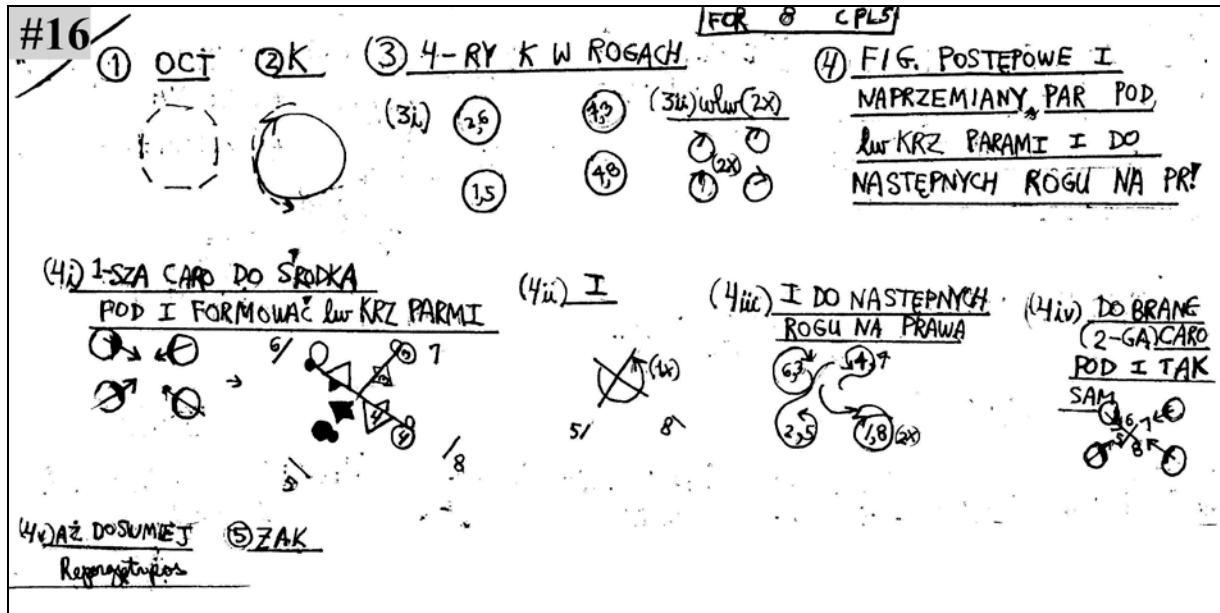 FOR 8 CPLS
#16
① OCT
② K
③ 4-RY K W ROGACH
(3i)
2,6
1,5
4,8
(3ii) wlw (2x)
(2x)
④ FIG. POSTĘPOWE I
NAPRZEMIANY PAR POD
lw KRZ PARAMI I DO
NASTĘPNYCH ROGU NA PR!
(4i) 1-SZA CARO DO ŚRODKA
POD I FORMOWAĆ lw KRZ PARMI
6/
7
5/
/8
(4ii) I
(1x)
5/
8\
(4iii) I DO NASTĘPNYCH
ROGU NA PRAWA
6,3
4,7
2,5
1,8 (2x)
(4iv) DO BRANE
(2-GA) CARO
POD I TAK
SAM
6 7
5 8
(4v) AŻ DOSUMIEJ
⑤ ZAK